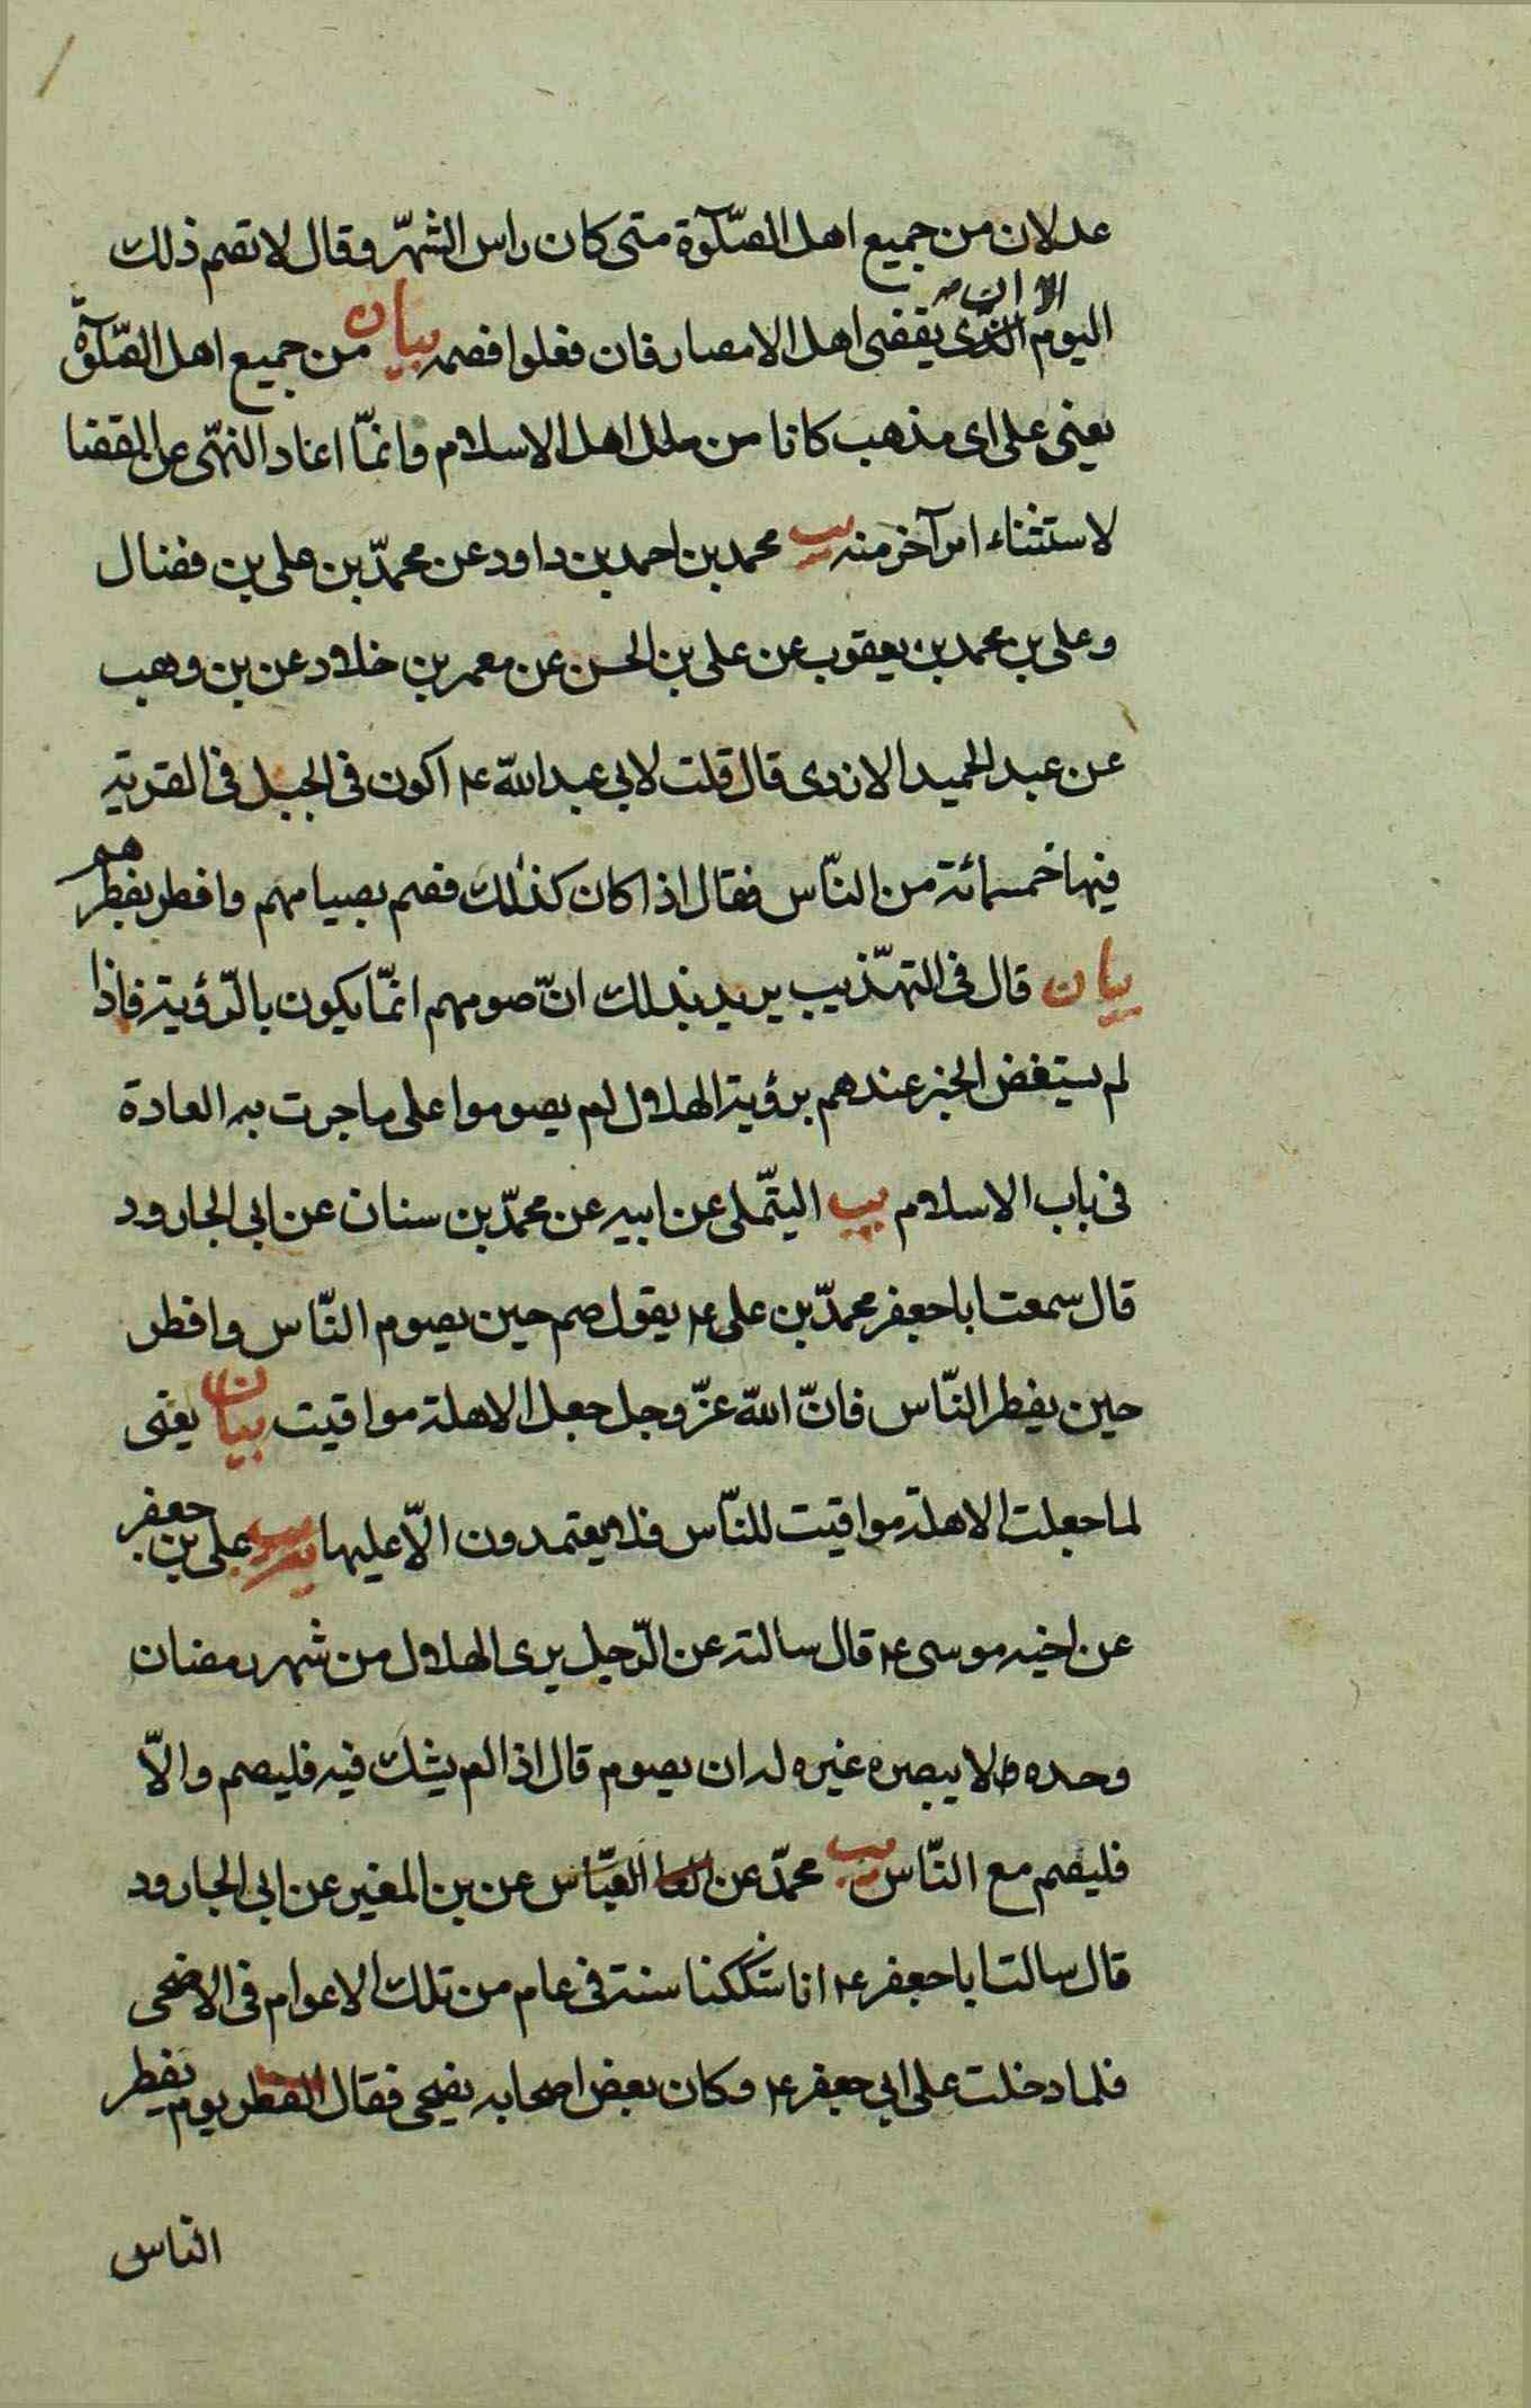 عدلان من جميع اهل الصّلوٓة متى كان راس الشهّر وقال لا تصم ذلك
الا ان
اليوم الذّى يقضى اهل الامصار فان فعلوا فصمه بيان من جميع اهل الصّلوٓة
يعنى على اى مذهب كانا من ملل اهل الاسلام وانمّا اعاد النهّى عن القضا
لاستثناء امر آخر منه يب محمد بن احمد بن داود عن محمدّ بن على بن فضال
وعلى بن محمد بن يعقوب عن على بن الحسن عن معمر بن خلاد عن بن وهب
عن عبد الحميد الازدى قال قلت لابى عبد الله ع اكون فى الجبل فى القرية
فيها خمسمائة من النّاس فقال اذا كان كذلك فصم بصيامهم وافطر بفطرهم
بيان قال فى التهّذيب يريد بذلك انّ صومهم انمّا يكون بالرّؤية فاذا
لم يستفض الخبر عندهم برؤية الهلال لم يصوموا على ما جرت به العادة
فى باب الاسلام يب التيّملى عن ابيه عن محمدّ بن سنان عن ابى الجارود
قال سمعت ابا جعفر محمدّ بن على ع يقول صم حين يصوم النّاس وافطر
حين يفطر النّاس فانّ الله عزّ وجل جعل الاهلة مواقيت بيان يعنى
لما جعلت الاهلة مواقيت للنّاس فلا يعتمدون الاّ عليها يب على بن جعفر
عن اخيه موسى ع قال سالته عن الرّجل يرى الهلال من شهر رمضان
وحده لا يبصره غيره له ان يصوم قال اذا لم يشك فيه فليصم والاّ
فليصم مع النّاس يب محمدّ عن العبّاس عن بن المغير عن ابى الجارود
قال سالت ابا جعفر ع انا شككنا سنة فى عام من تلك الاعوام فى الاضحى
فلما دخلت على ابى جعفر ع وكان بعض اصحابه يضحى فقال الفطر يوم يفطر
الناس